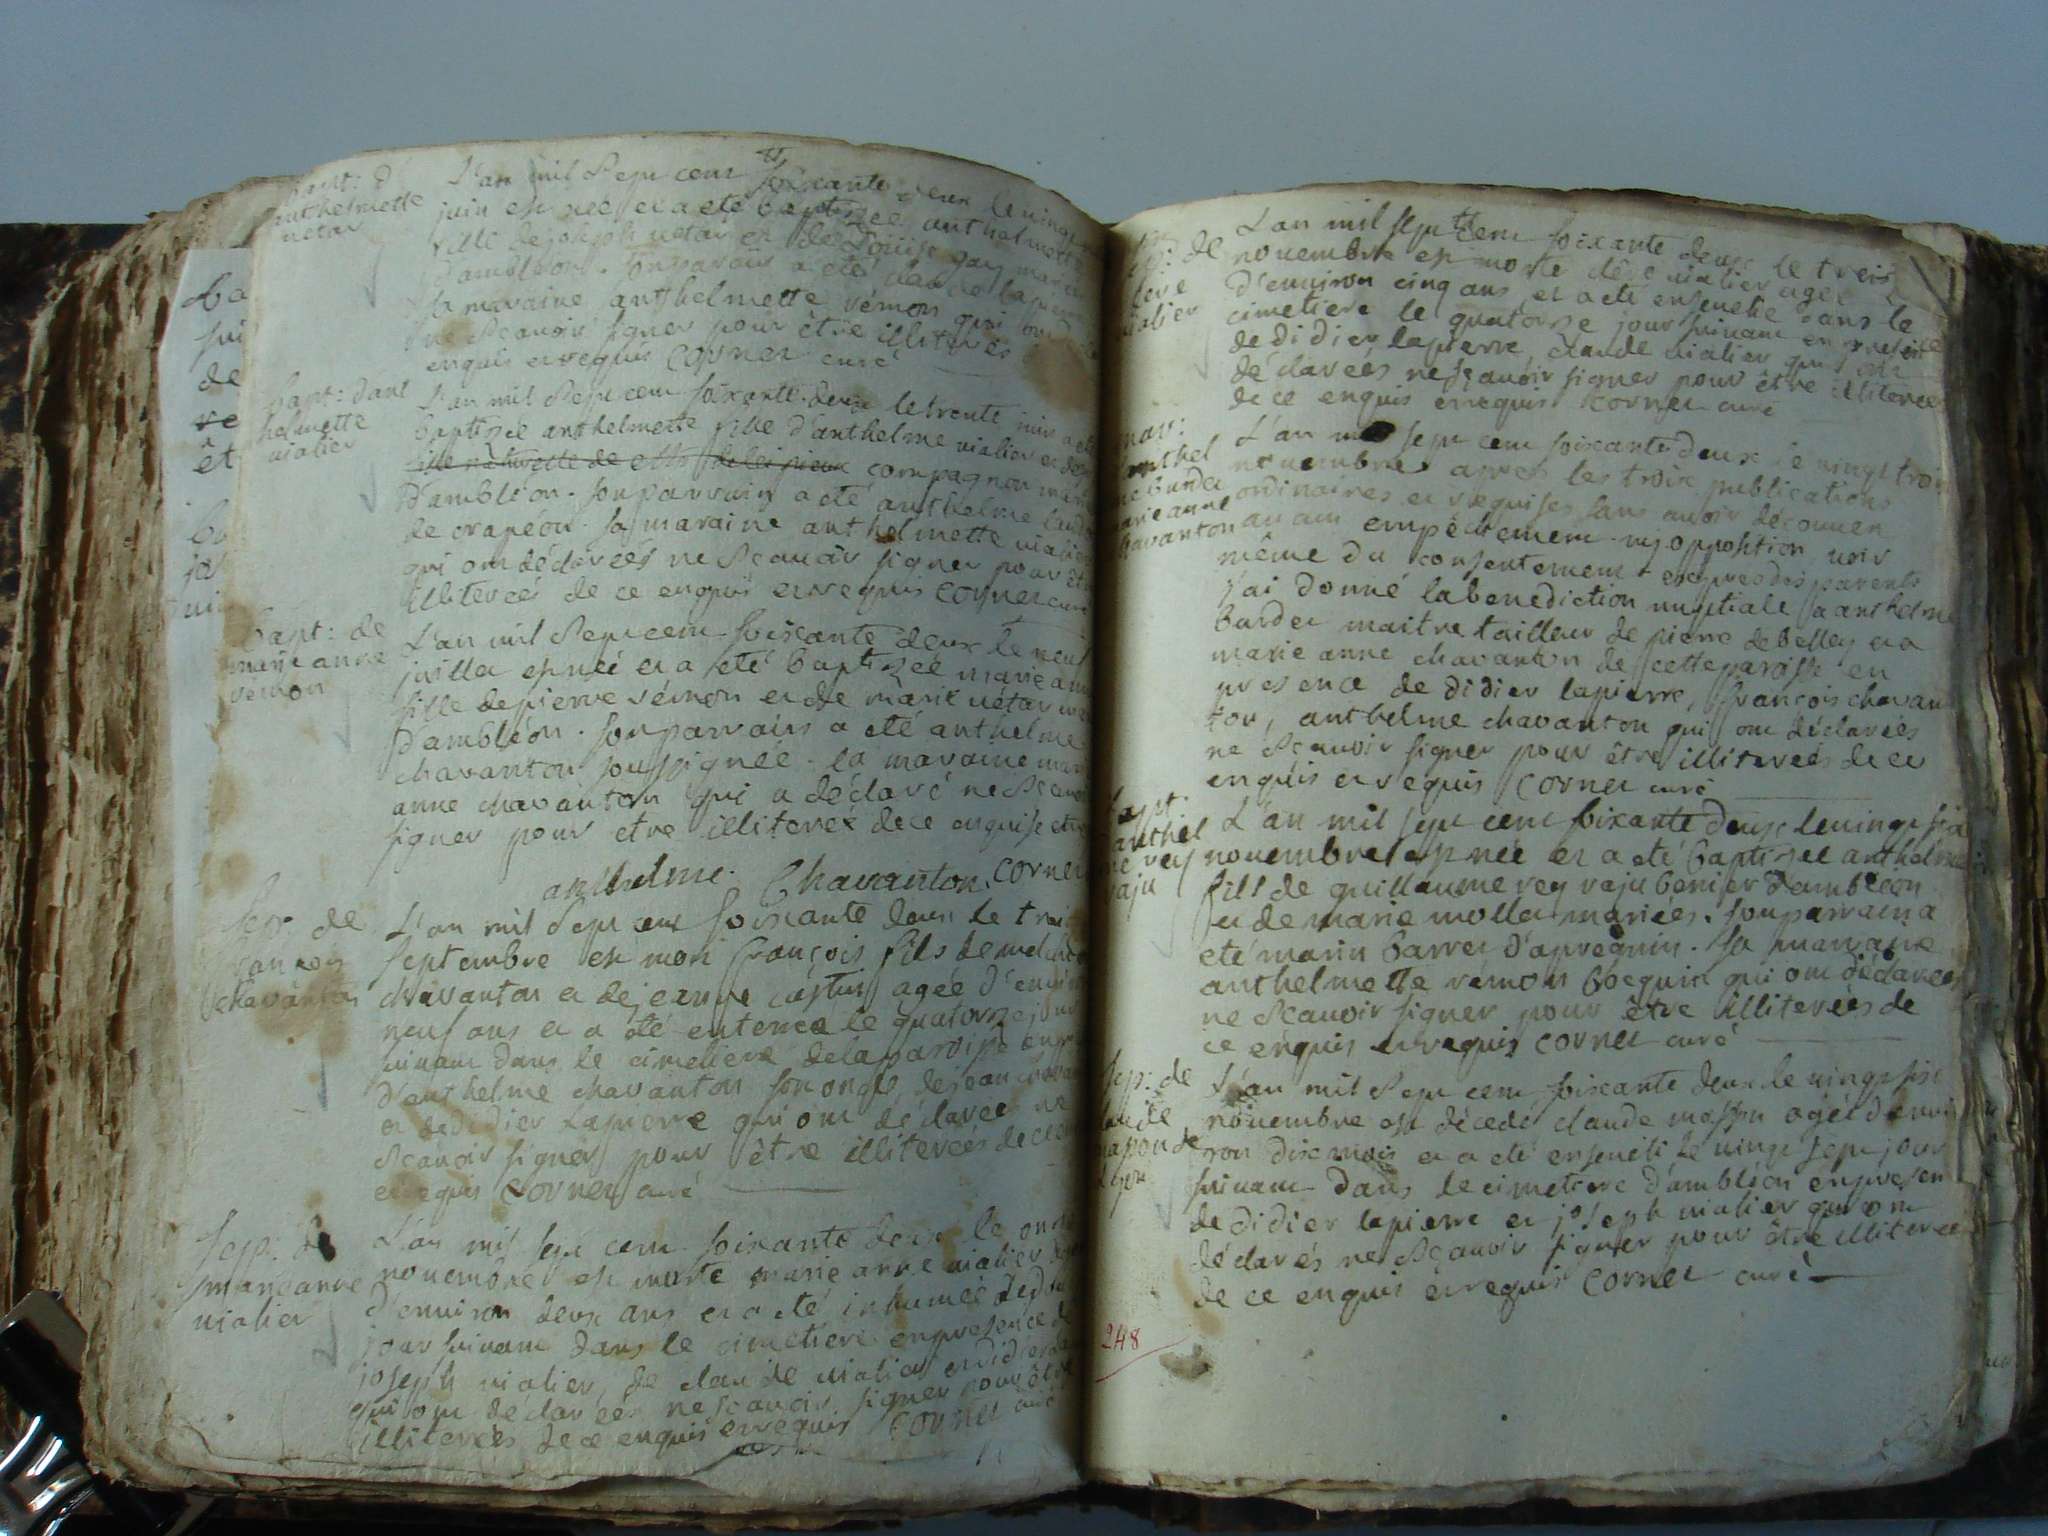 bapt: d'
anthelmette
uetar
L'an mil Sept cent soixante deux le vingt
juin est née et a eté baptisée anthelmette
fille de joseph uetar et de Louise gay mariés
d'ambléon. son parain a eté claude
sa maraine anthelmette vernon qui ont
ne Sçauoir signer pour être illiterés
enquis et requis Cornet curé
bapt: d'ant
helmette
uialier
L'an mil Sept cent soixante deux le trente juin a eté
baptisée anthelmette fille d'anthelme uialier et de
fille naturelle de compagnon
d'ambléon. son parrain a eté anthelme
de crapéou. sa maraine anthelmette uialier
qui ont déclareés ne Sçauoir signer pour être
illitereés de ce enquis et requis Cornet curé
bapt: de
marie anne
vernon
L'an mil Sept cent soixante deux le neuf
juillet est née et a eté baptisée marie anne
fille de pierre vernon et de marie uétar
d'ambléon. son parrain a eté anthelme
chavanton soussignée. la maraine marie
anne chavanton qui a déclaré ne Sçauoir
signer pour etre illiteréé de ce enquise et
anthelme. Chavanton. Cornet
Sep: de
françois
chavanton
L'an mil Sept cent soixante deux le treize
Septembre est mort françois fils de
chavanton et de jeanne agée d'environ
neuf ans et a eté enterré le quatorze jour
suiuant dans le cimetiere de la paroisse en
d'anthelme chavanton son oncle, de jean chavan
et de didier Lapierre qui ont déclarés ne
Sçauoir signer pour être illitereés de ce en
et requis Cornet curé
Sep: de
marie anne
uialier
L'an mil sept cent soixante deux le onze
nouembre est morte marie anne uialier
d'enuiron deux ans et a eté inhumée le
jour suiuant dans le cimetiere en presence de
joseph uialier, de claude uialier et didier
qui ont déclareés ne Scauoir signer pour être
illitereés de ce enquis et requis Cornet curé
Sep: de
uialier
L'an mil sept cent soixante deux le treis
nouembre est morte uialier agée
d'enuiron cinq ans et a eté enseuelie dans le
cimetiere le quatorze jour suiuant en presence
de didier lapierre, claude uialier qui ont
déclareés ne sçauoir signer pour être illitereés
de ce enquis et requis Cornet curé
mar:
anthel
me bardet
marie anne
chavanton
L'an mil sept cent soixante deux le vingt trois
nouembre apres les trois publications
ordinaires et requises sans auoir découuert
aucun empéchement ny opposition, uew
même du consentement exprès des parents
j'ai donné la benediction nuptiale a anthelme
bardet maitre tailleur de pierre de belley et a
marie anne chavanton de cette paroisse en
presence de didier lapierre, françois chavan
ton, anthelme chavanton qui ont déclareés
ne Sçauoir signer pour être illitereés de ce
enquis et requis Cornet curé
bapt:
d'anthel
me rey
raju
L'an mil sept cent soixante deux le vingt six
nouembre est née et a eté baptisée anthelme
fils de guillaume rey raju d'ambléon
et de marie mollet mariées. son parrain a
eté marin barret d'apregnin. sa maraine
anthelmette vernon qui ont déclareés
ne Scauoir signer pour être illitereés de
ce enquis et requis Cornet curé
Sep: de
claude
L'an mil Sept cent soixante deux le vingt six
nouembre est décedé claude masson agée d'enui
ron dix mois et a eté enseueli le vingt sept jour
suiuant dans le cimetiere d'ambléon en presen
de didier lapierre et joseph uialier qui ont
déclarés ne Sçauoir signer pour être illitereés
de ce enquis et requis Cornet curé
248